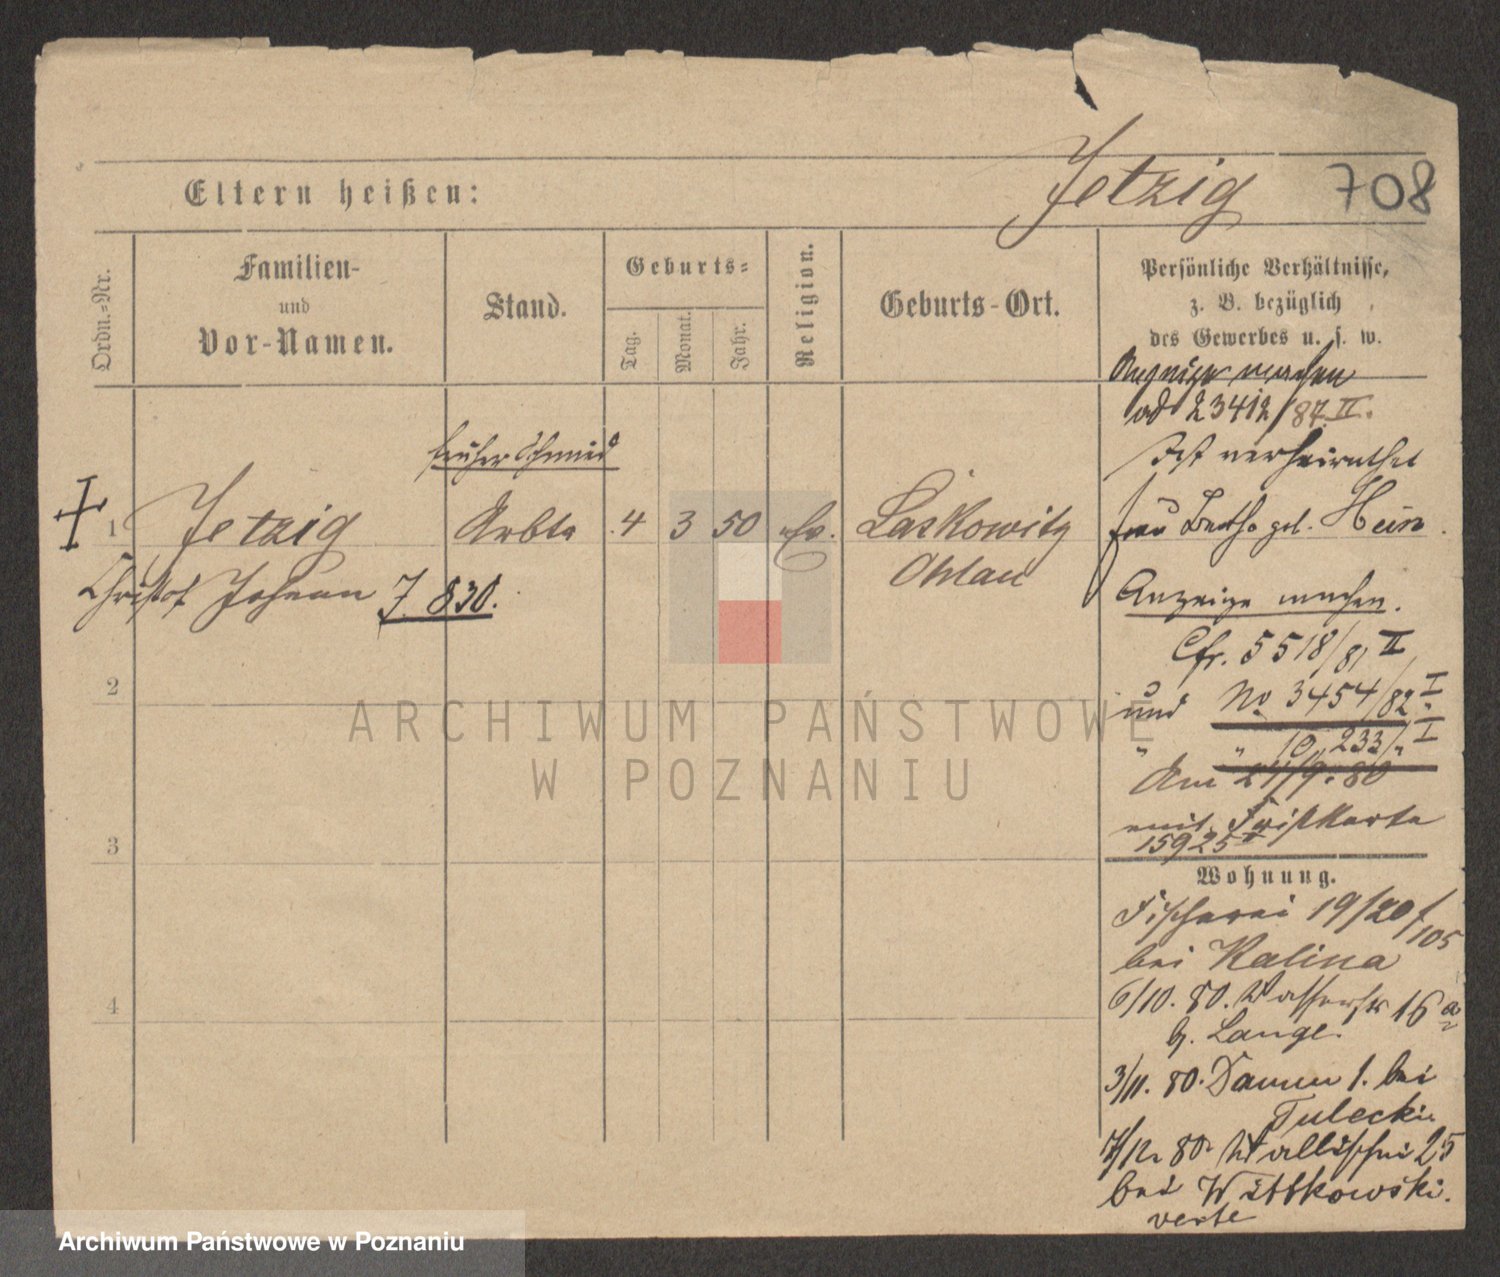 Jetzig 708
Eltern heißen:
Ordn.-Nr.
Familien-
und
Vor-Namen.
Stand.
Geburts-
Tag.
Monat.
Jahr.
Religion.
Geburts-Ort.
Persönliche Verhältnisse,
z. B. bezüglich
des Gewerbes u. s. w.
machen
ad 23412/87 II.
Ist verheirathet
früher Schmied
1 Jetzig Arbtr 4 3 50 ev. Laskowitz
Ohlau
Christof Johann J 830.
Frau Bertha geb. Hein.
Anzeige machen.
Cfr. 5518/81 II
und No 3454/82 I
" " 10,233/" I
Am 21/9. 80
mit Fristkarte
15925
2
3
4
Wohnung.
Fischerei 19/20 /105
bei Kalina
6/10. 80. Wasserstr 16a
b. Lange.
3/11. 80. Damm 1. bei
Tulecki.
7/12. 80. Wallischei 25
bei Wittkowski.
verte
ARCHIWUM PAŃSTWOWE
W POZNANIU
Archiwum Państwowe w Poznaniu